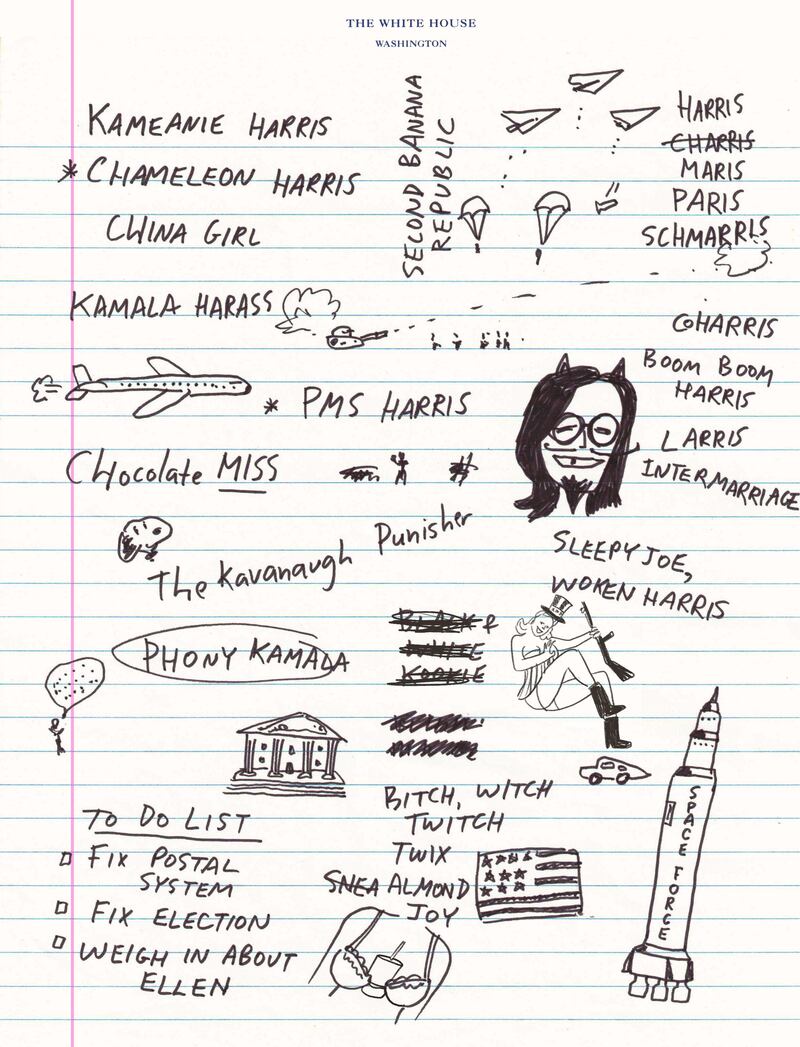 THE WHITE HOUSE
WASHINGTON
KAMEANIE HARRIS
* CHAMELEON HARRIS
CHINA GIRL
SECOND BANANA
REPUBLIC
HARRIS
CHARRIS
MARIS
PARIS
SCHMARRIS
KAMALA HARASS
COHARRIS
BOOM BOOM
HARRIS
* PMS HARRIS
LARRIS
INTERMARRIAGE
CHocolate MISS
The Kavanaugh Punisher
SLEEPY JOE,
WOKEN HARRIS
PHONY KAMALA
BLACK &
WHITE
KOOKIE
BITCH, WITCH
TWITCH
TWIX
SNEA ALMOND
JOY
TO DO LIST
FIX POSTAL
SYSTEM
FIX ELECTION
WEIGH IN ABOUT
ELLEN
SPACE FORCE